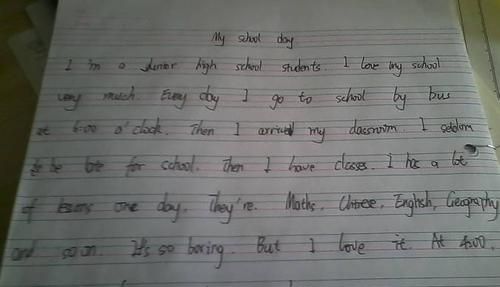 My school day
I'm a Junior high school students. I love my school
very much. Every day I go to school by bus
at 6:00 o'clock. Then I arrived my classroom. I seldom
be late for school. Then I have classes. I has a lot
of lessons one day. They're. Maths, Chinese, English, Geography
and so on. It's so boring. But I love it. At 4:00.